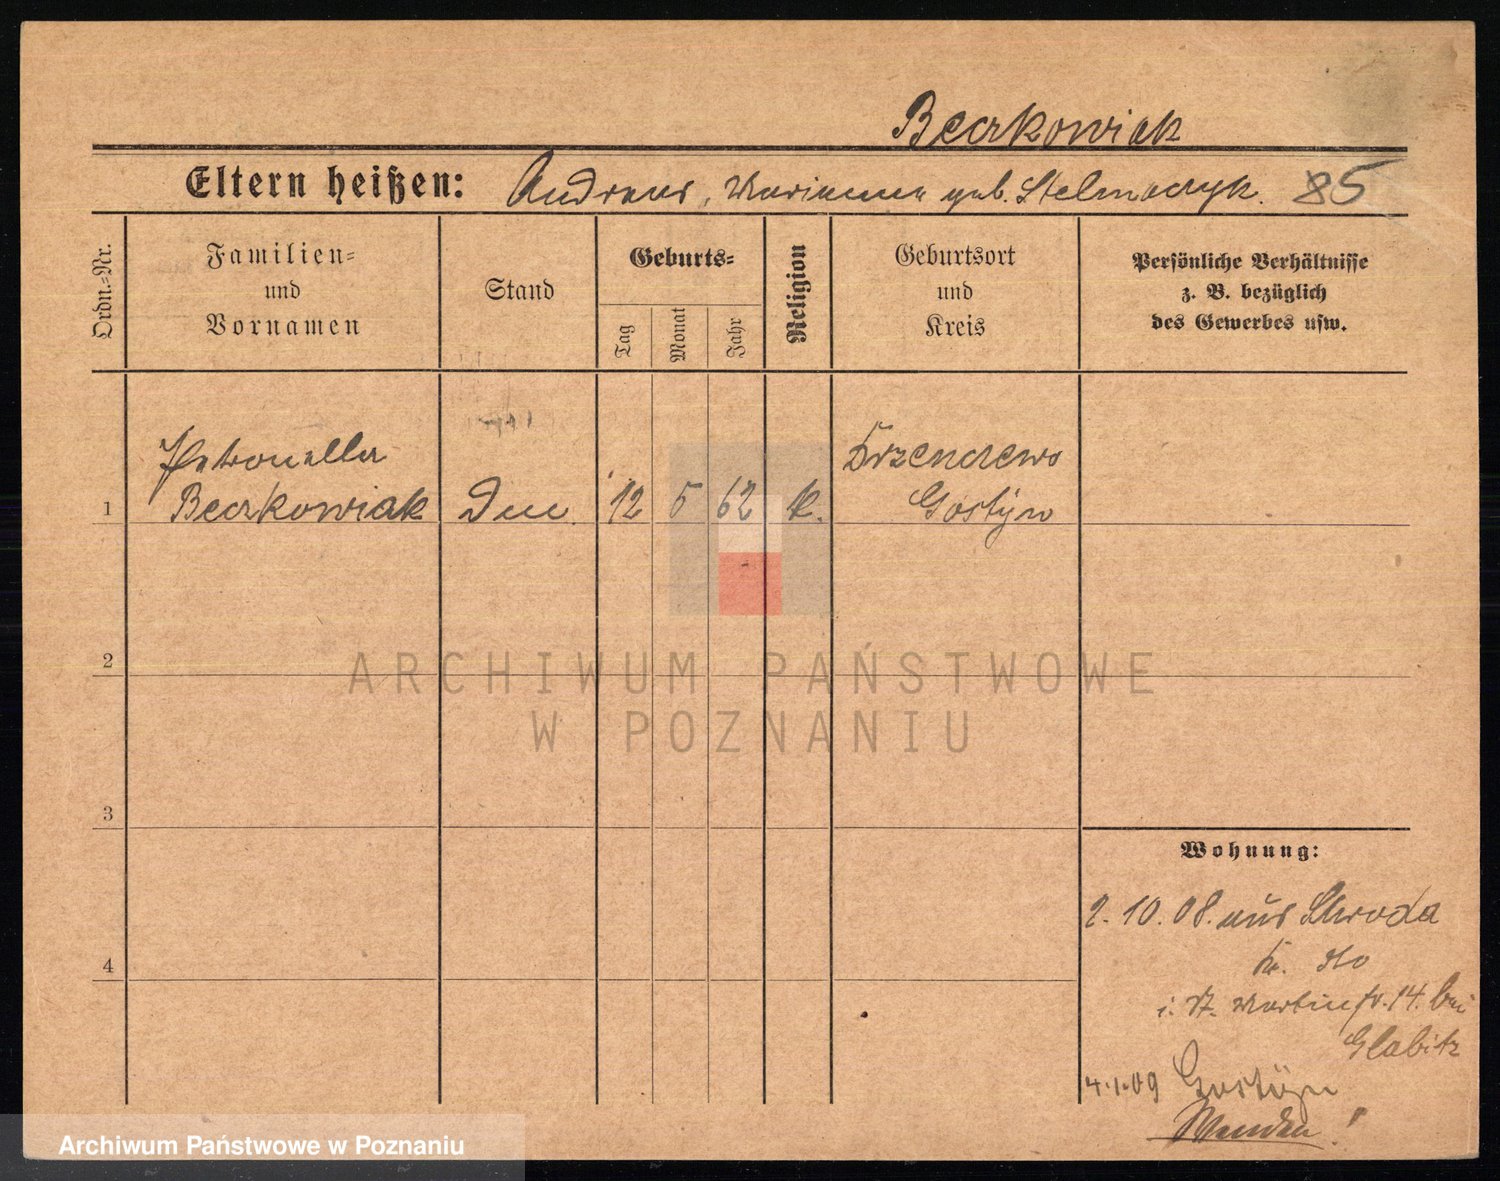 Beczkowiak
Eltern heißen: Andreas, Marianna geb. Stelmaczyk. 85
Ordn.-Nr.
Familien-
und
Vornamen
Stand
Geburts-
Tag
Monat
Jahr
Religion
Geburtsort
und
Kreis
Persönliche Verhältnisse
z. B. bezüglich
des Gewerbes usw.
Petronella
1 Beczkowiak
12 5 62 k.
Gostyn
2
ARCHIWUM PAŃSTWOWE
W POZNANIU
3
Wohnung:
2.10.08. aus Schroda
4
i. St. Martinstr. 14. bei
Glabitz
4.1.09 Gostyn
Wenden!
Archiwum Państwowe w Poznaniu